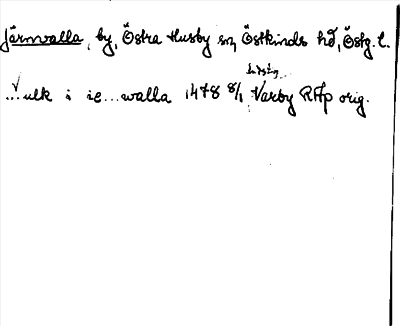 Järnvalla, by, Östra Husby sn, Östkinds hd, Östg. l.
...ulk i ie...walla 1478 8/1 Varby RAp orig.